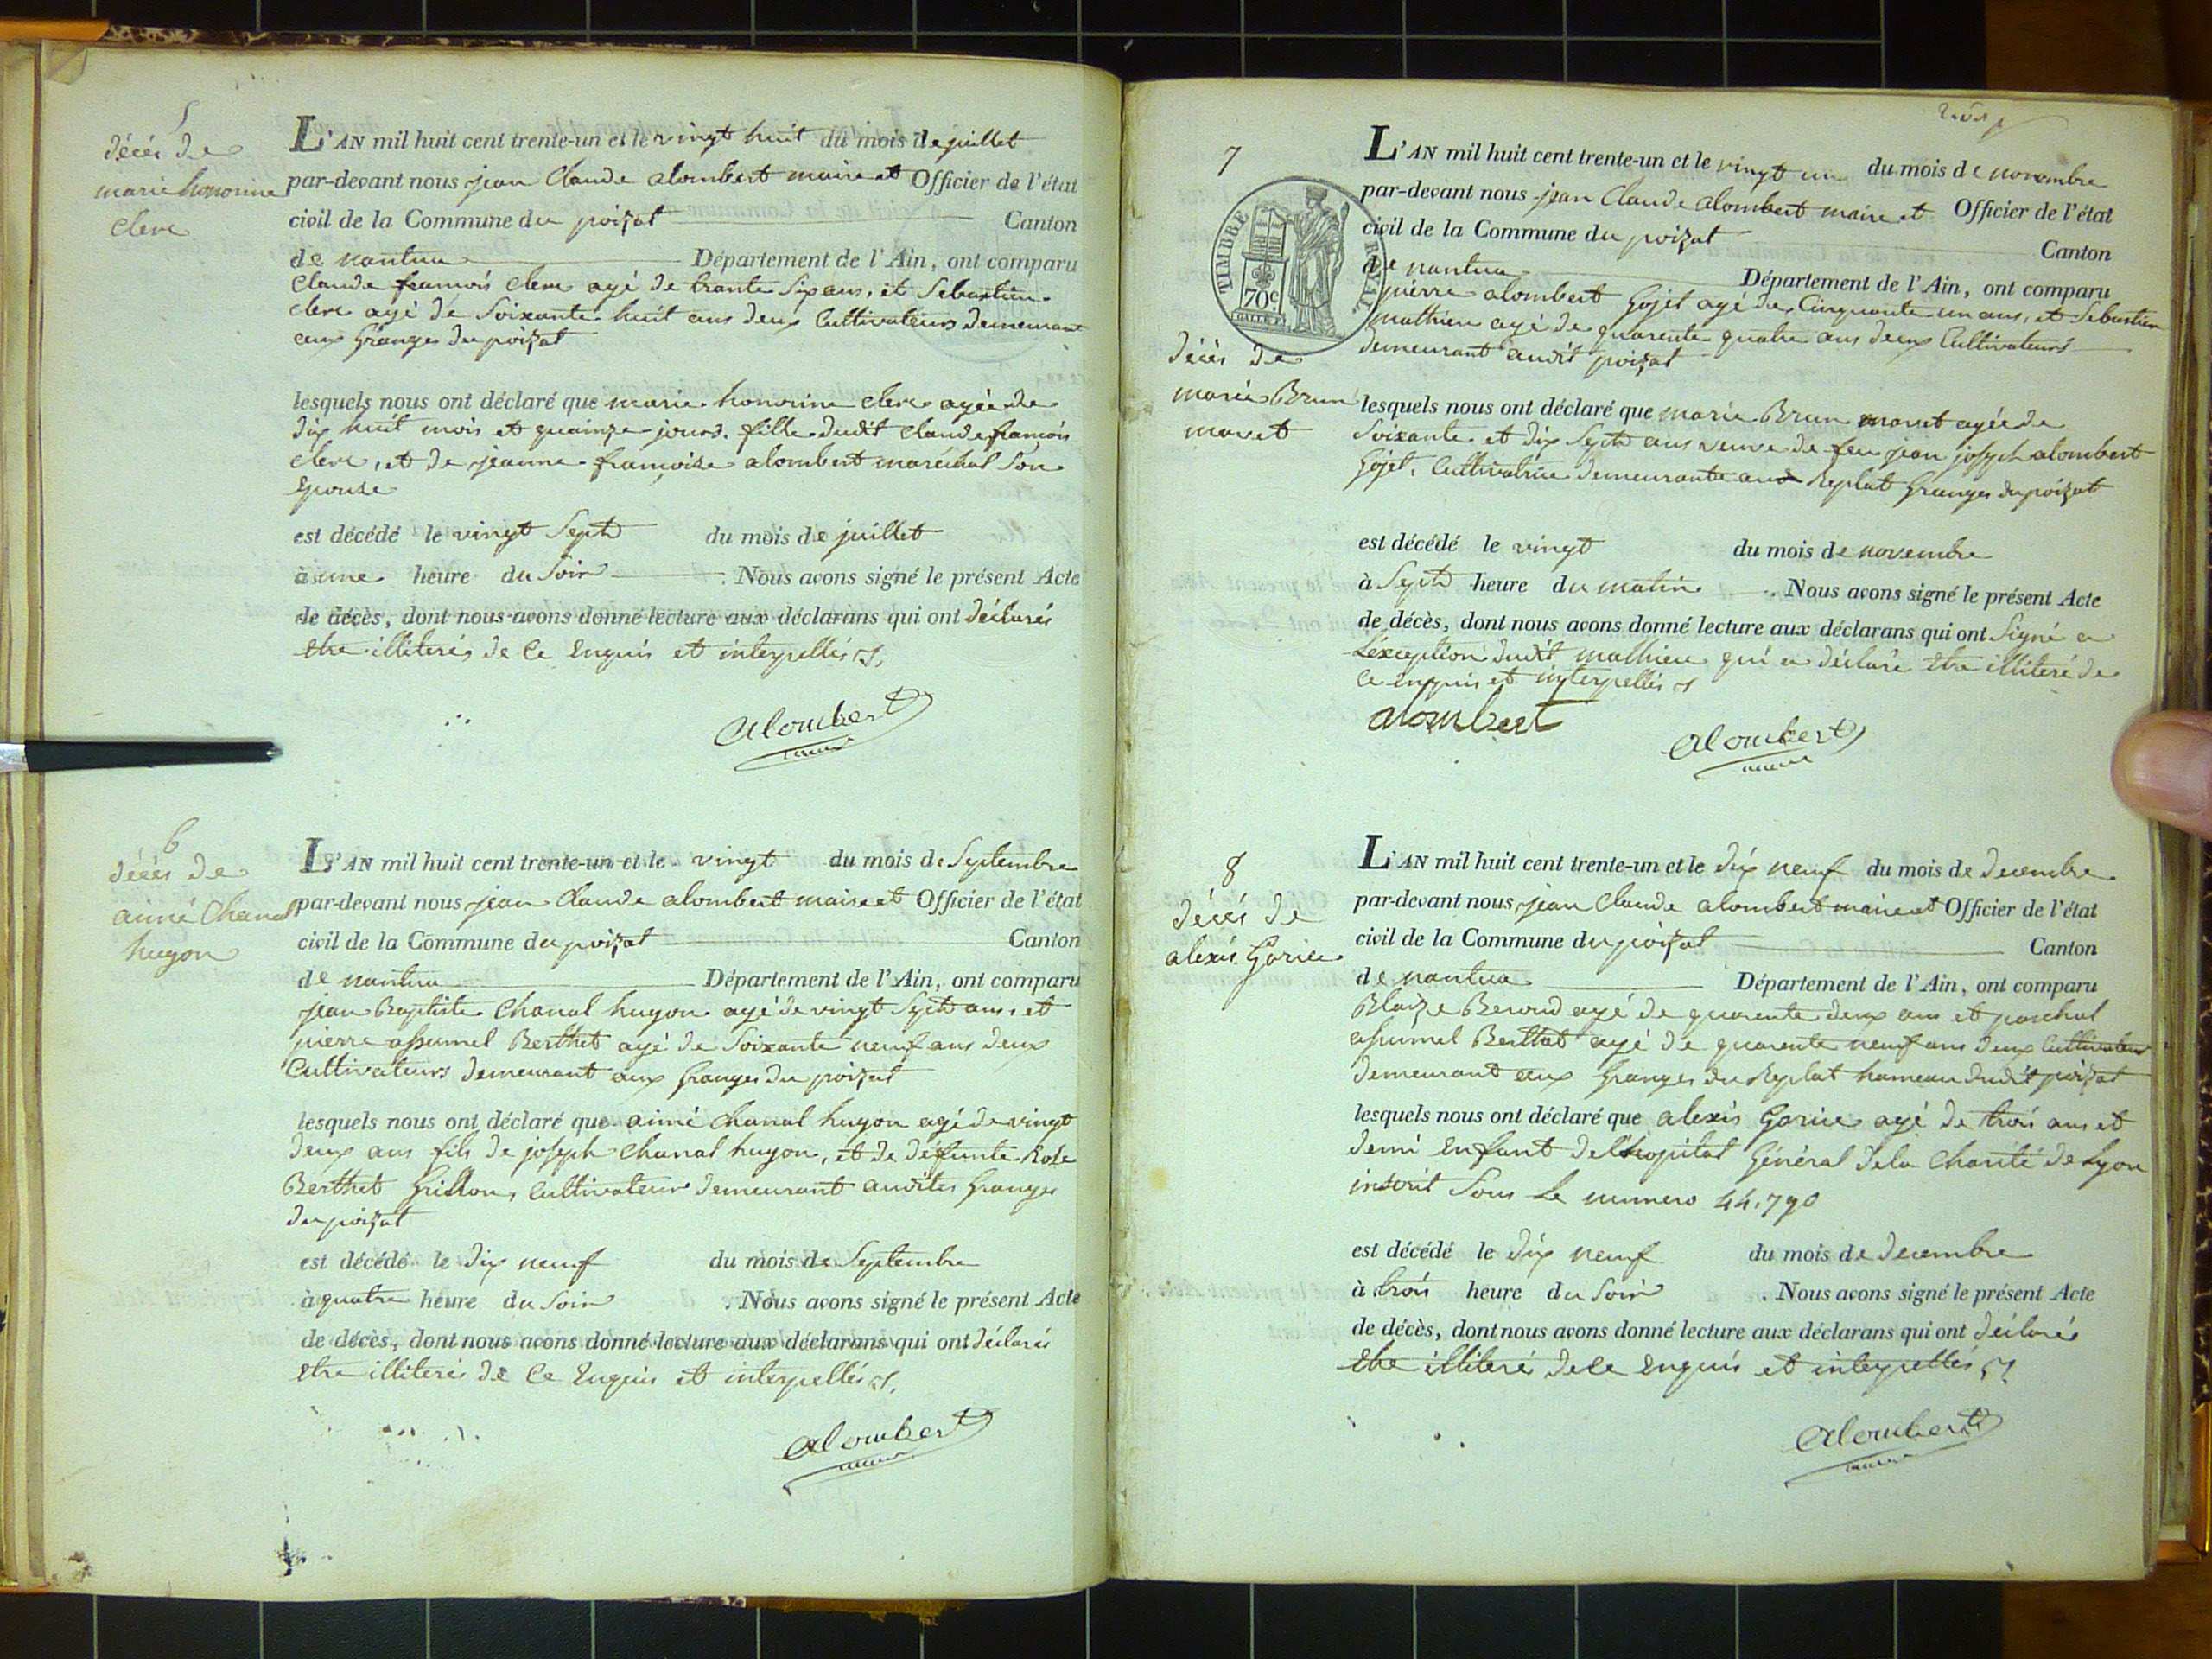 5
décés de
marie honorine
clerc
L'AN mil huit cent trente-un et le vingt huit du mois de juillet
par-devant nous jean Claude alombert maire et Officier de l'état
civil de la Commune du poizat Canton
de nantua Département de l'Ain, ont comparu
Claude francois clerc agé de trante six ans, et Sebastien
clerc agé de Soixante huit ans deux Cultivateurs demeurant
aux Granges du poizat
lesquels nous ont déclaré que marie honorine clerc agée de
dix huit mois et quainze jours. fille dudit Claude francois
clerc, et de jeanne françoise alombert maréchal Son
Epouse
est décédé le vingt Sept du mois de juillet
à une heure du Soir . Nous avons signé le présent Acte
de décès, dont nous avons donné lecture aux déclarans qui ont déclarés
Etre illiterés de Ce Enquis et interpellés
Alombert
6
décés de
aimé Chanal
hugon
L'AN mil huit cent trente-un et le vingt du mois de Septembre
par-devant nous jean Claude alombert maire et Officier de l'état
civil de la Commune du poizat Canton
de nantua Département de l'Ain, ont comparu
jean Baptiste Chanal hugon agé de vingt Sept ans, et
pierre assumel Berthet agé de Soixante neuf ans deux
Cultivateurs demeurant aux Granges du poizat
lesquels nous ont déclaré que aimé Chanal hugon agé de vingt
deux ans fils de joseph Chanal hugon, et de défunte Rose
Berthet Grillon, Cultivateur demeurant audites Granges
du poizat
est décédé le dix neuf du mois de Septembre
à quatre heure du Soir . Nous avons signé le présent Acte
de décès, dont nous avons donné lecture aux déclarans qui ont déclarés
Etre illiterés de Ce Enquis et interpellés
Alombert
7
TIMBRE ROYAL
70c
décés de
marie Brun
maret
L'AN mil huit cent trente-un et le vingt un du mois de novembre
par-devant nous jean Claude alombert maire et Officier de l'état
civil de la Commune du poizat Canton
de nantua Département de l'Ain, ont comparu
pierre alombert Gojet agé de Cinquante un ans, et Sebastien
mathieu agé de quarente quatre ans deux Cultivateurs
demeurant audit poizat
lesquels nous ont déclaré que marie Brun maret agée de
Soixante et dix Sept ans veuve de feu jean joseph alombert
Gojet, Cultivatrice demeurante aux Replat Granges du poizat
est décédé le vingt du mois de novembre
à Sept heure du matin . Nous avons signé le présent Acte
de décès, dont nous avons donné lecture aux déclarans qui ont Signé a
L'exception dudit mathieu qui a déclaré Etre illiteré de
Ce enquis et interpellés
alombert
Alombert
8
décés de
alexis Gorice
L'AN mil huit cent trente-un et le dix neuf du mois de decembre
par-devant nous jean Claude alombert maire et Officier de l'état
civil de la Commune du poizat Canton
de nantua Département de l'Ain, ont comparu
Blaize Beroud agé de quarente deux ans et paschal
assumel Berthet agé de quarente neuf ans deux Cultivateurs
demeurant aux Granges du Replat hameau dudit poizat
lesquels nous ont déclaré que alexis Gorice agé de trois ans et
demi Enfant de l'hopital Général de la Charité de Lyon
inscrit Sous Le numero 44.790
est décédé le dix neuf du mois de decembre
à trois heure du Soir . Nous avons signé le présent Acte
de décès, dont nous avons donné lecture aux déclarans qui ont déclarés
Etre illiteré de Ce Enquis et interpellés
Alombert